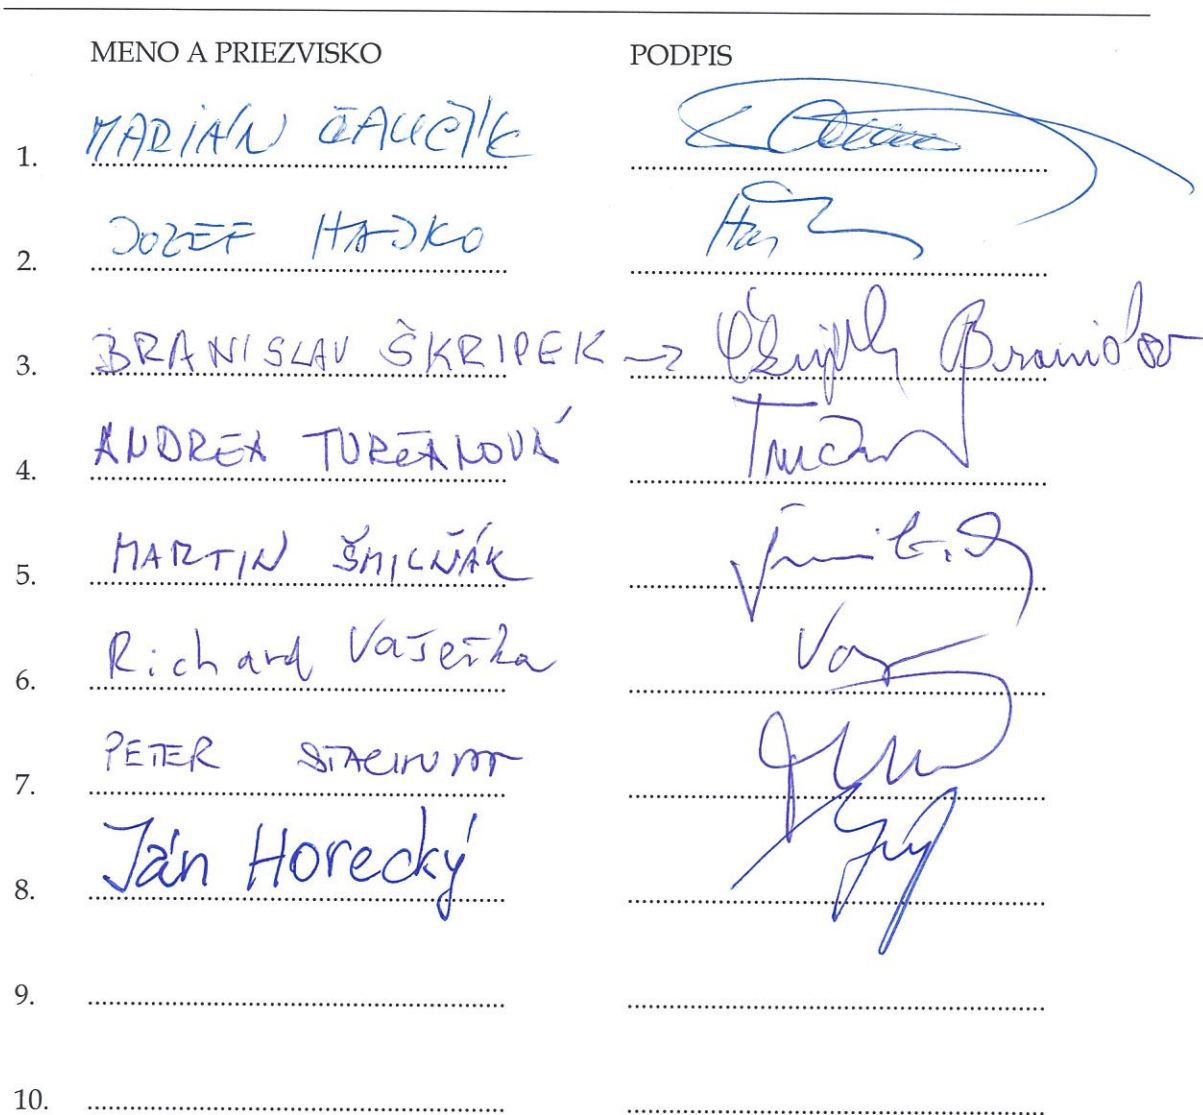 MENO A PRIEZVISKO PODPIS
1. MARIÁN ČAUČÍK
2. JOZEF HAJKO
3. BRANISLAV ŠKRIPEK → Branislav
4. ANDREA TURČANOVÁ
5. MARTIN ŠMILŇÁK
6. Richard Vašečka
7. PETER
8. Ján Horecký
9.
10.